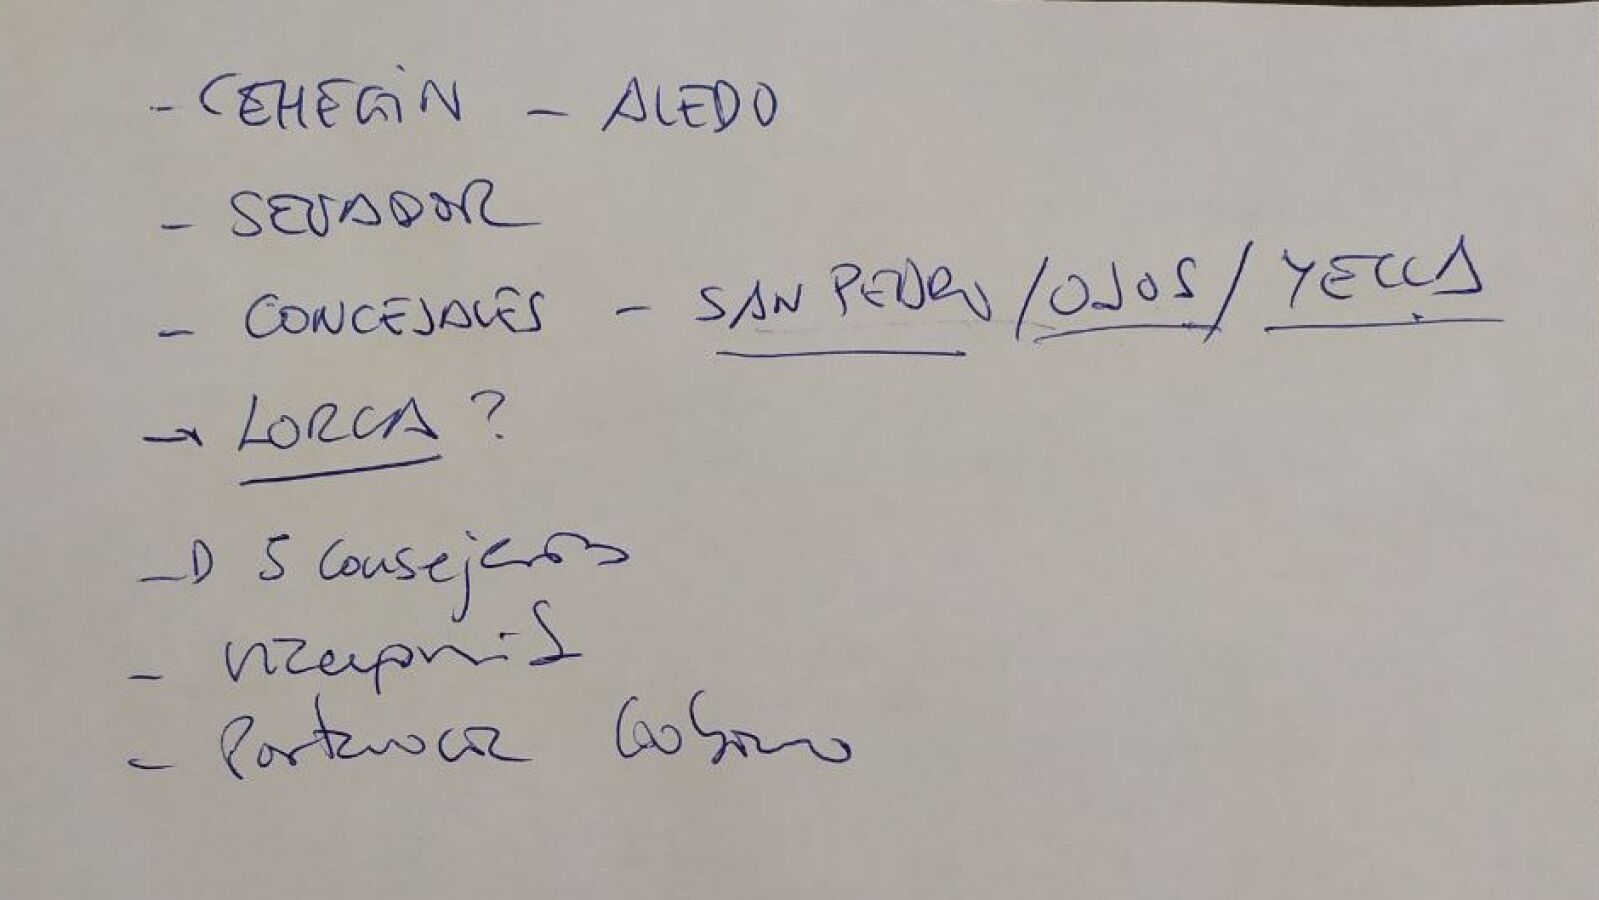 - CEHEGÍN - ALEDO
- SENADOR
- CONCEJALES - SAN PEDRO / OJOS / YECLA
→ LORCA ?
→ 5 Consejeros
- Vicepresid
- Portavocía Gobierno